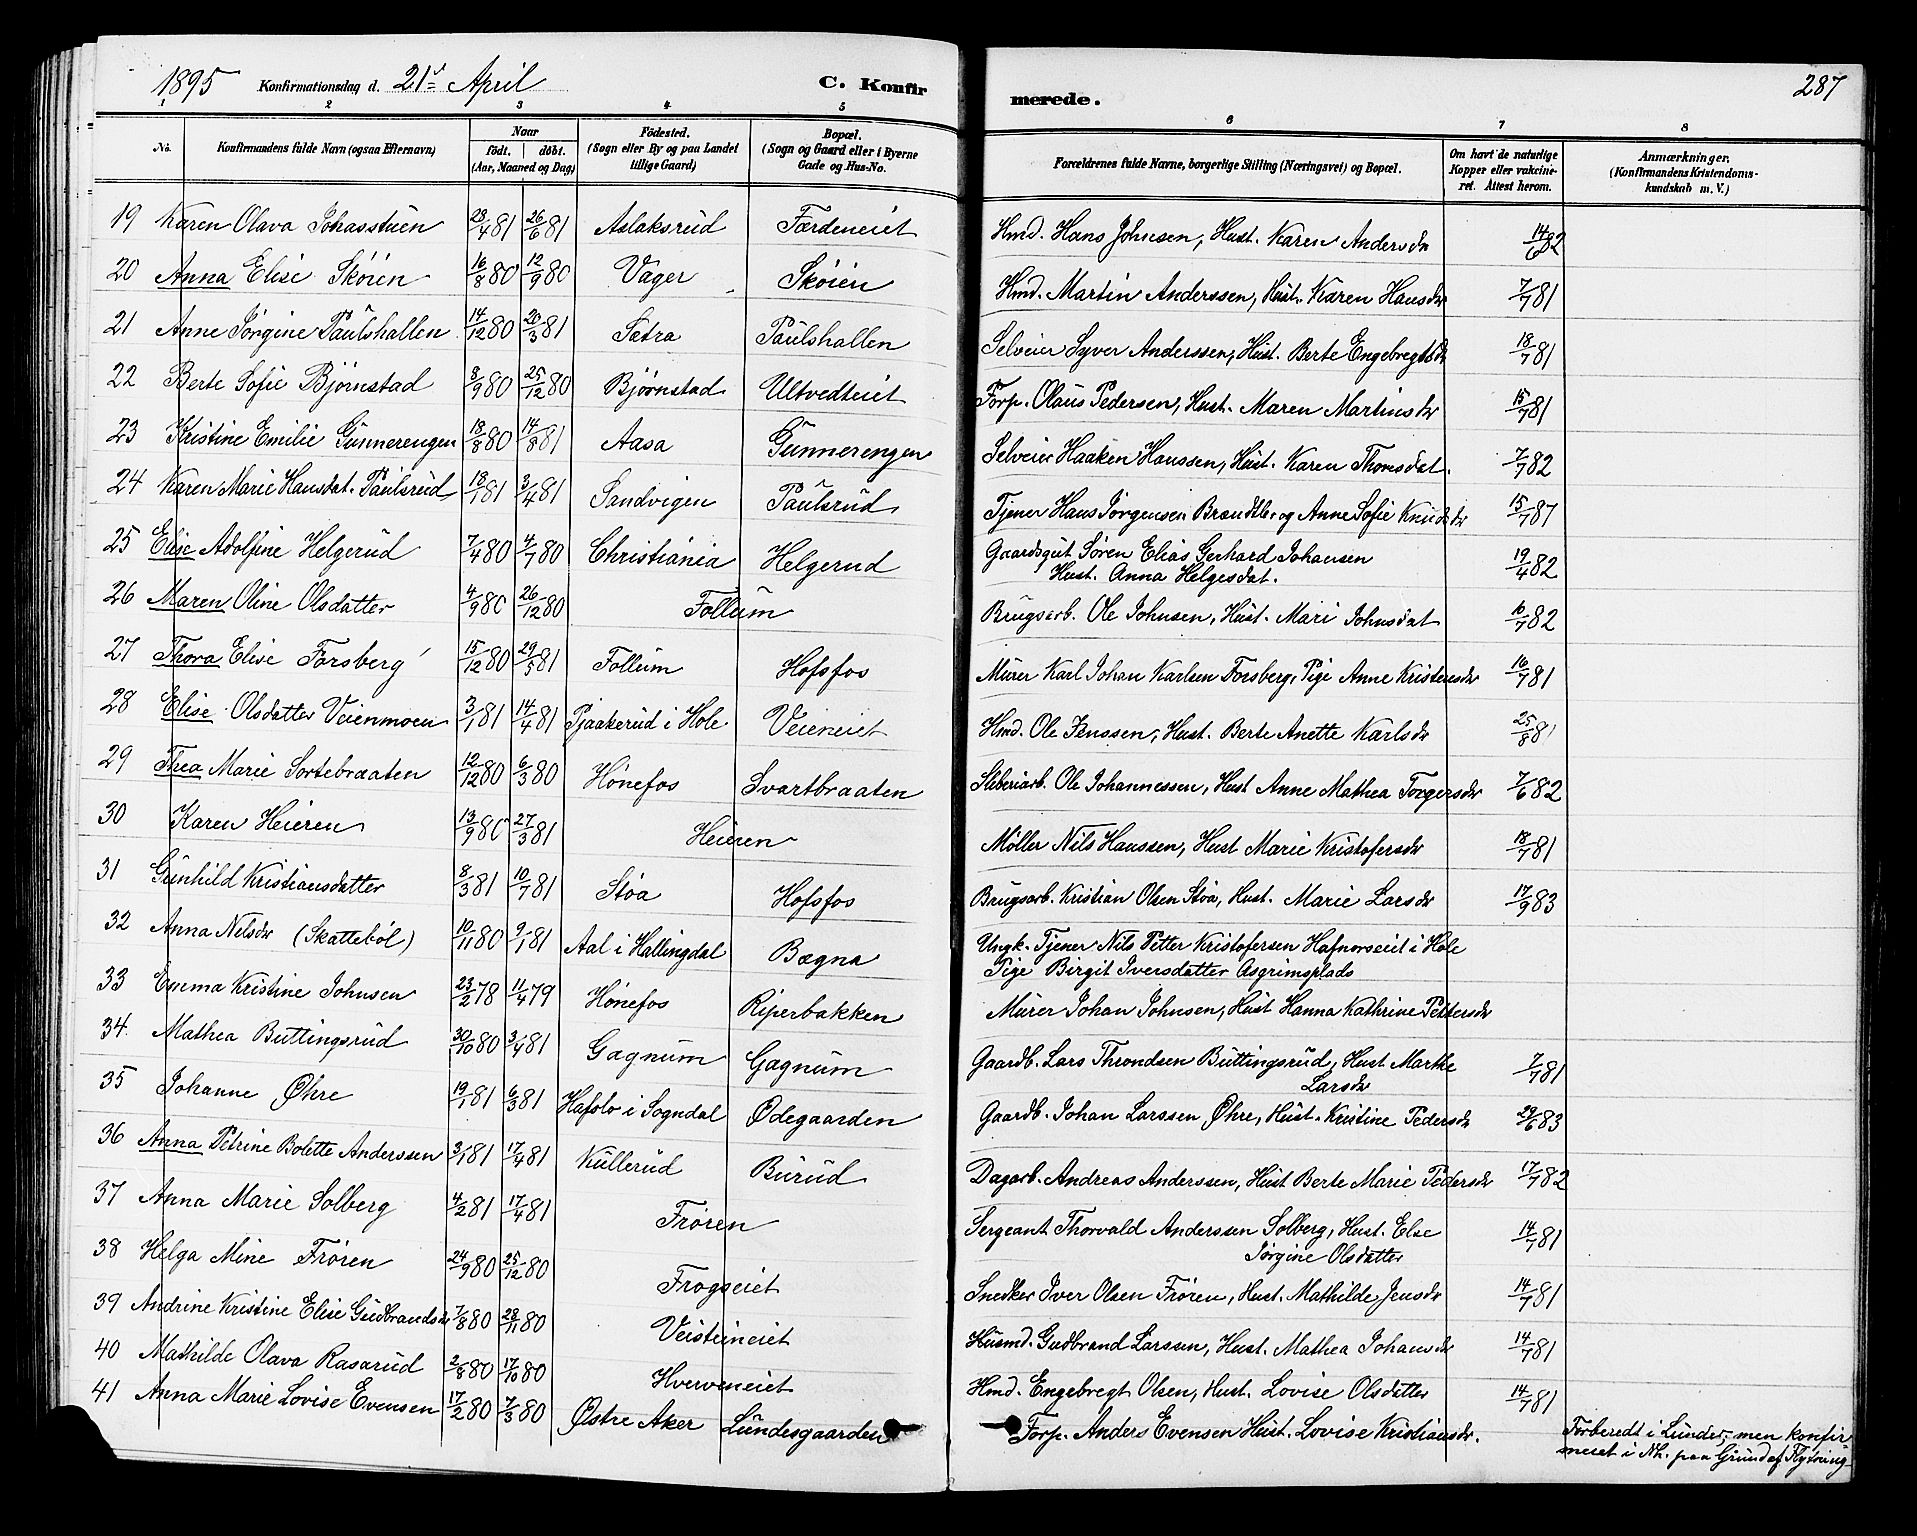 1895 Konfirmationsdag d. 21de April C. Konfir
merede. 287
1 2 3 4 5 6 7 8
No. Konfirmandens fulde Navn (ogsaa Efternavn) Naar födt. döbt. (Aar, Maaned og Dag) Födested. (Sogn eller By og paa Landet tillige Gaard) Bopæl. (Sogn og Gaard eller i Byerne Gade og Hus-No. Forældrenes fulde Navne, borgerlige Stilling (Næringsvei) og Bopæl. Om havt de naturlige Kopper eller vakcineret. Attest herom. Anmærkninger. (Konfirmandens Kristendomskundskab m. V.)
19 Karen Olava Johasstuen 23/4 81 26/6 81 Aslaksrud Færdeneiet Hmd. Hans Johnsen, Hust. Karen Andersdr 14/6 82
20 Anna Elise Sköien 16/8 80 12/9 80 Vager Sköien Hmd. Martin Anderssen, Hust. Karen Hansdr 7/7 81
21 Anne Jørgine Paulshallen 14/12 80 20/3 81 Sætra Paulshallen Selveier Syver Anderssen, Hust. Berte Engebregtsdr 18/7 81
22 Berte Sofie Bjørnstad 8/9 80 25/12 80 Bjørnstad Ultvedteiet Forp. Olaus Pedersen, Hust. Maren Martinsdr 15/7 81
23 Kristine Emilie Gunnerengen 18/8 80 14/8 81 Aasa Gunnerengen Selveier Haaken Hanssen, Hust. Karen Thomsdat. 7/7 82
24 Karen Marie Hansdat. Paulsrud 18/1 81 3/4 81 Sandvigen Paulsrud Tjener Hans Jørgensen Brandtbr og Anne Sofie Knudsdr 15/7 87
25 Elise Adolfine Helgerud 7/4 80 4/7 80 Christiania Helgerud Gaardsgut Søren Elias Gerhard Johansen
Hust. Anna Helgesdat. 19/4 82
26 Maren Oline Olsdatter 4/9 80 26/12 80 Follum Brugsarb. Ole Johnsen, Hust. Mari Johnsdat 10/7 82
27 Thora Elise Forsberg 15/12 80 29/5 81 Follum Hofsfos Murer Karl Johan Karlsen Forsberg, Pige Anne Kristensdr 16/7 81
28 Elise Olsdatter Veienmoen 3/1 81 14/4 81 Pjaakerud i Hole Veieneiet Hmd. Ole Jenssen, Hust. Berte Anette Karlsdr 25/8 81
29 Thea Marie Sortebraaten 12/12 80 6/3 80 Hönefos Svartbraaten Sliberiarb. Ole Johannessen, Hust Anne Mathea Torgersdr 7/6 82
30 Karen Heieren 13/9 80 27/3 81 Heieren Møller Nils Hanssen, Hust Marie Kristofersdr 18/7 81
31 Gunhild Kristiansdatter 8/3 81 10/7 81 Støa Hofsfos Brugsarb. Kristian Olsen Støa, Hust. Marie Larsdr 17/9 83
32 Anna Nilsdr (Skatteböl) 10/11 80 9/1 81 Aal i Hallingdal Bægna Ungk. Tjener Nils Petter Kristofersen Hafnorseiet i Hole
Pige Birgit Iversdatter Asgrimsplads
33 Emma Kristine Johnsen 23/2 78 11/4 79 Hönefos Riperbakken Murer Johan Johnsen, Hust Hanna Kathrine Pettersdr
34. Mathea Buttingsrud 30/10 80 3/4 81 Gagnum Gagnum Gaardb. Lars Throndsen Buttingsrud, Hust Marthe
Larsdr 7/7 81
35 Johanne Øhre 19/1 81 6/3 81 Hafslo i Sogndal Ødegaarden Gaardb. Johan Larssen Øhre, Hust. Kristine Pedersdr 29/6 83
36 Anna Petrine Bolette Anderssen 3/1 81 17/4 81 Kullerud Burud Dagarb. Andreas Anderssen, Hust Berte Marie Pedersdr 17/7 82
37 Anna Marie Solberg 4/2 81 17/4 81 Frøren Sergeant Thorvald Anderssen Solberg, Hust. Else
Jørgine Olsdatter 14/7 81
38 Helga Mine Frøren 24/9 80 25/12 80 Frogseiet Snedker Iver Olsen Frøren, Hust. Mathilde Jensdr 14/7 81
39 Andrine Kristine Elise Gudbrandsdr 7/8 80 28/11 80 Veisteineiet Husmd. Gudbrand Larssen, Hust. Mathea Johansdr 14/7 81
40 Mathilde Olava Rasarud 2/8 80 17/10 80 Hverveneiet Hmd. Engebregt Olsen, Hust. Lovise Olsdatter 14/7 81
41 Anna Marie Lovise Evensen 17/2 80 7/3 80 Østre Aker Lundesgaarden Forp. Anders Evensen Hust. Lovise Kristiansdr. Forberedt i Lunder, men konfir
meret i Nh. paa Grund af Flytning